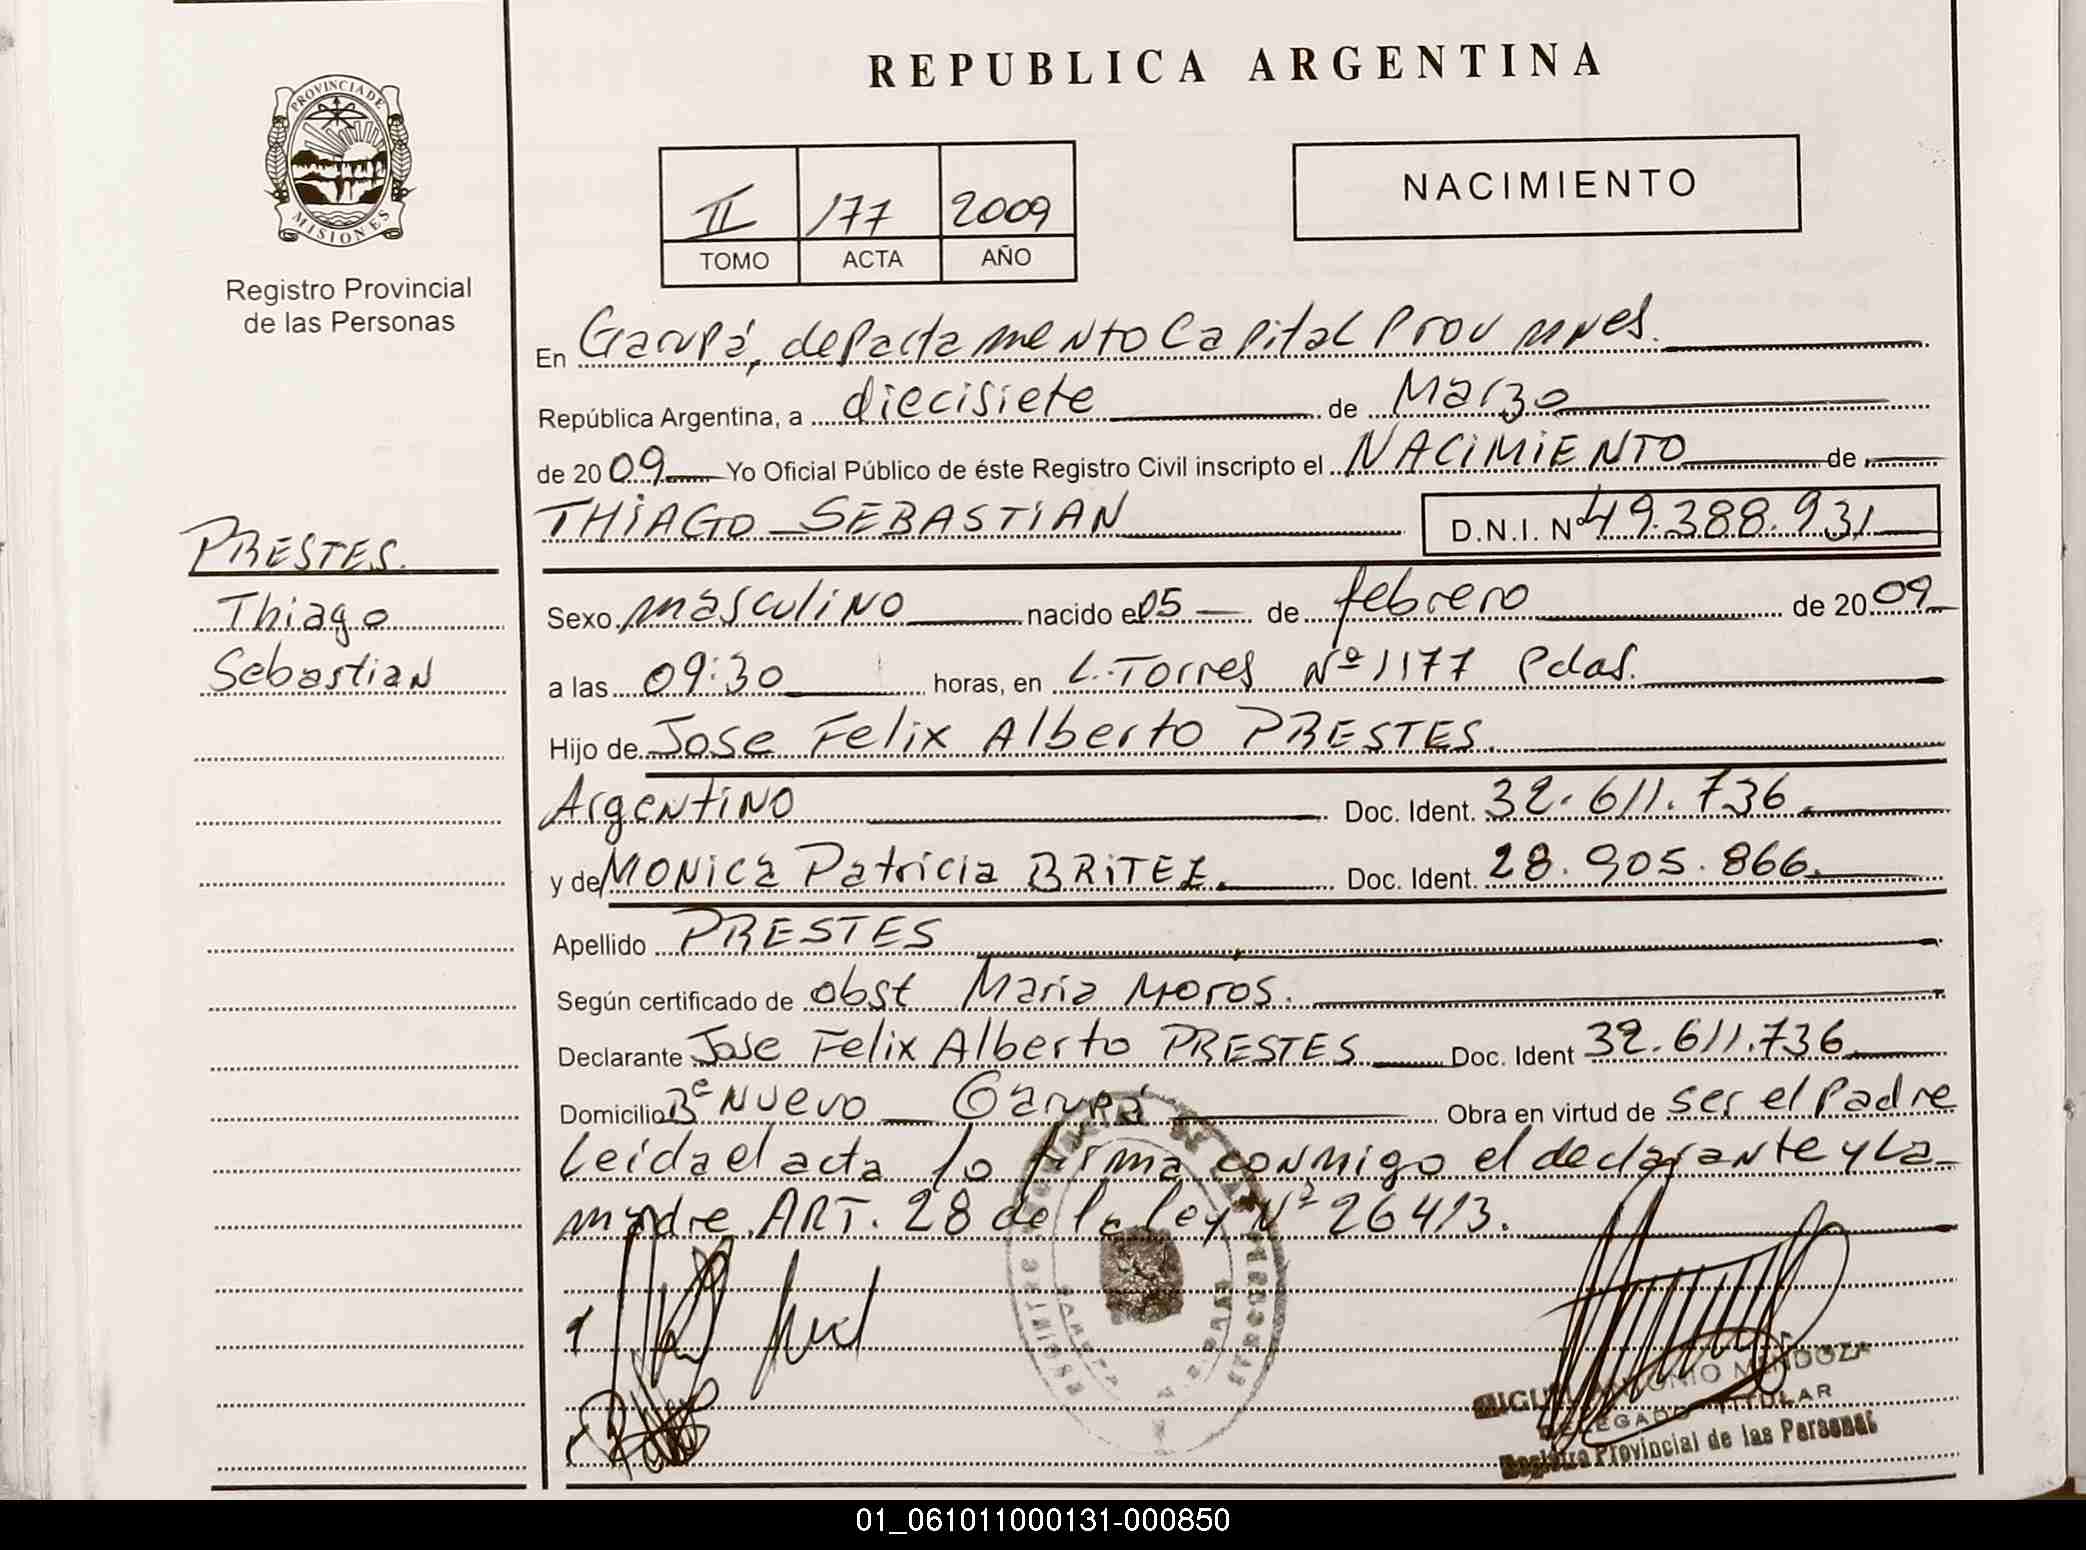 REPUBLICA ARGENTINA
PROVINCIA DE
MISIONES
Registro Provincial
de las Personas
II 177 2009
TOMO ACTA AÑO
NACIMIENTO
En Garupá, departamento Capital Prov Mnes.
República Argentina, a diecisiete de Marzo
de 2009 Yo Oficial Público de éste Registro Civil inscripto el NACIMIENTO de
THIAGO SEBASTIAN D.N.I. Nº 49.388.931
PRESTES.
Thiago
Sebastian
Sexo masculino nacido el 05 de febrero de 2009
a las 09:30 horas, en L. Torres Nº 1177 Pdas.
Hijo de Jose Felix Alberto PRESTES.
Argentino Doc. Ident. 32.611.736.
y de MONICA Patricia BRITEZ. Doc. Ident. 28.905.866.
Apellido PRESTES
Según certificado de obst Maria Moros.
Declarante Jose Felix Alberto PRESTES Doc. Ident 32.611.736
Domicilio Bº Nuevo Garupá Obra en virtud de ser el Padre
Leida el acta lo firma conmigo el declarante y la
madre. ART. 28 de la ley Nº 26413.
MIGUEL ANTONIO MENDOZA
DELEGADO TITULAR
Registro Provincial de las Personas
01_061011000131-000850